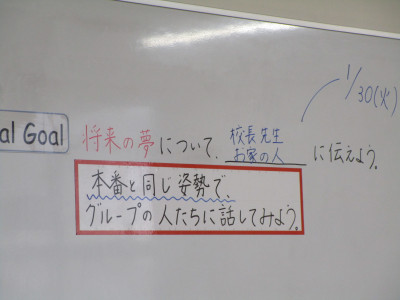 1/30(火)
al Goal
校長先生
将来の夢について、お家の人に伝えよう。
本番と同じ姿勢で、
グループの人たちに話してみよう。